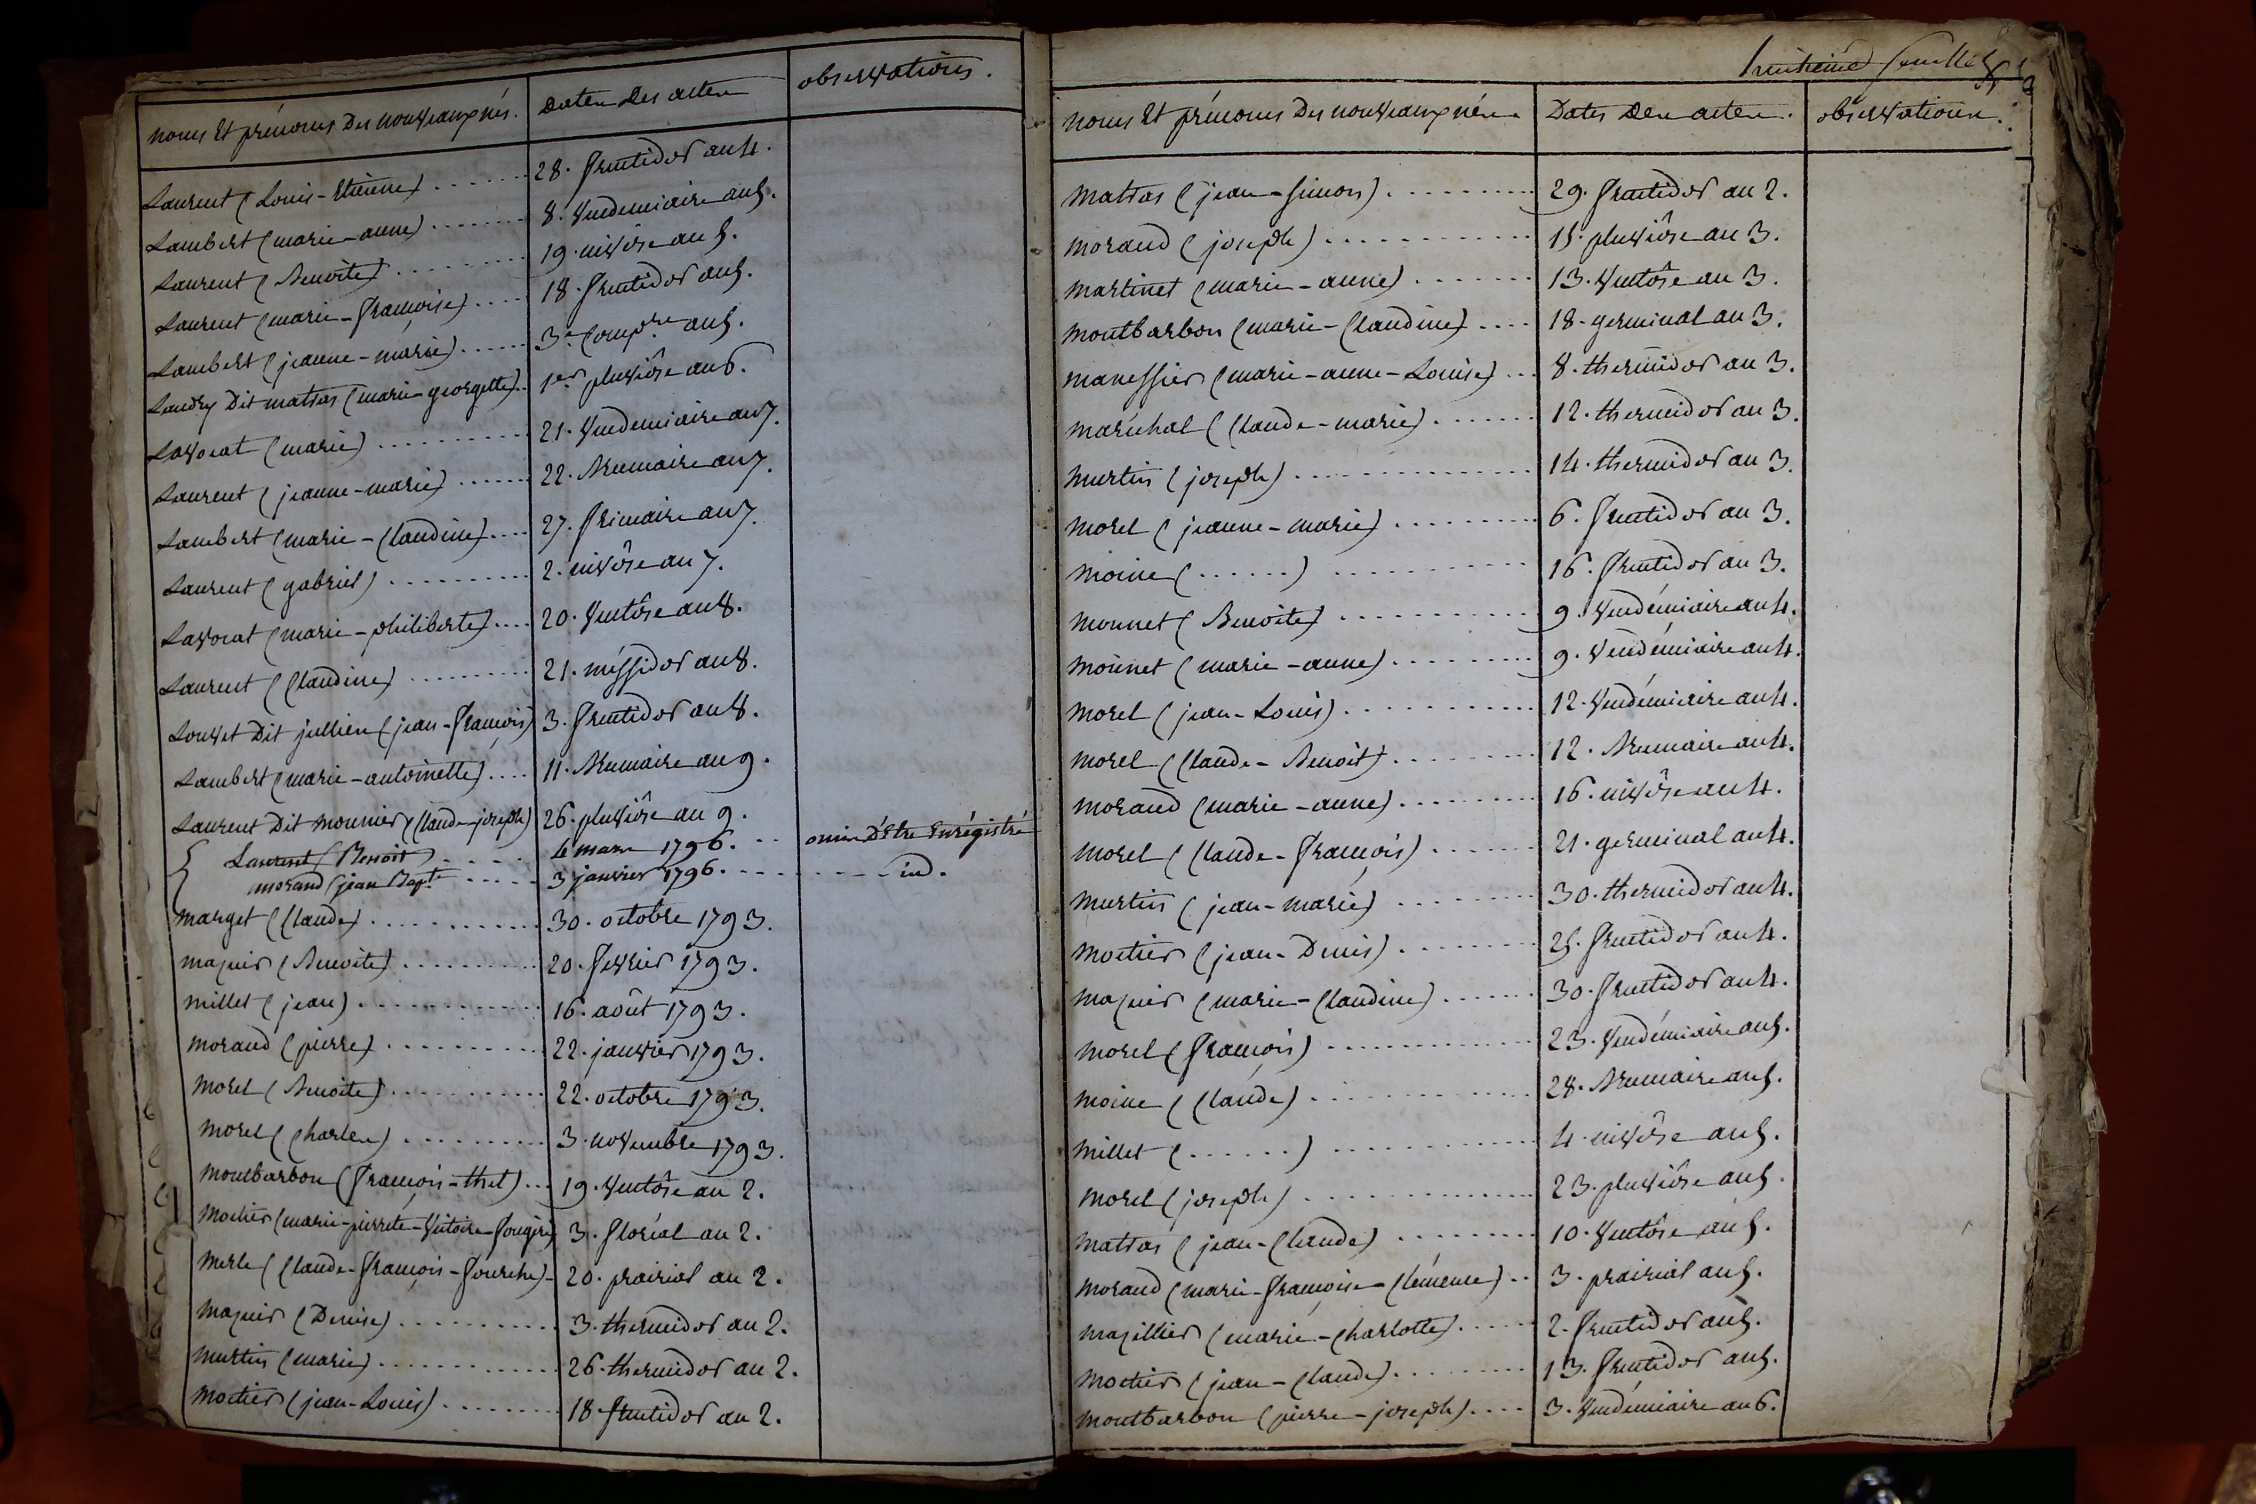 noms Et prénoms Des nouveaux nés. Dates Des actes observations.
Laurent (Louis-Etienne) ...... 28. fructidor an 4.
Lambert (marie-anne) ...... 8. Vendemiaire an 5.
Laurent (Benoite) ........ 19. nivôse an 5.
Laurent (marie-françoise) .... 18. fructidor an 5.
Lambert (jeanne-marie) ..... 3e. Compre an 5.
Landry Dit matras (marie-georgette).. 1er pluviôse an 6.
Lavocat (marie) .......... 21. Vendemiaire an 7.
Laurent (jeanne-marie) ...... 22. Brumaire an 7.
Lambert (marie-Claudine).... 27. frimaire an 7.
Laurent (gabriel) .......... 2. nivôse an 7.
Lavocat (marie-philiberte) .... 20. Ventôse an 8.
Laurent (Claudine) ........ 21. méssidor an 8.
Louvet Dit jullien (jean-françois) 3. fructidor an 8.
Lambert (marie-antoinette) .... 11. Brumaire an 9.
Laurent Dit mounier (Claude-joseph) 26. pluviôse an 9.
Laurent (Benoit) ..... 4 mars 1796. .. omis D'Etre Enrégistré
morand (jean Bapte ..... 3 janvier 1796. ........ id.
marget (Claude) .......... 30. octobre 1793.
mazuir (Benoite) ......... 20. fevrier 1793.
millet (jean) ............ 16. août 1793.
morand (pierre) .......... 22. janvier 1793.
morel (Benoite) .......... 22. octobre 1793.
morel (Charles) ......... 3. novembre 1793.
montbarbon (françois-thel) ... 19. Ventôse an 2.
moctier (marie-pierrete-Victoire-fougère) 3. floréal an 2.
merle (Claude-françois-fourche) - 20. prairial an 2.
mazuir (Denise) .......... 3. thermidor an 2.
murtin (marie) ............ 26. thermidor an 2.
moctier (jean-Louis) ........ 18 fructidor an 2.
huitième feuillet
noms Et prénoms Des nouveaux nés. Dates Des actes. observations.
matras (jean-simon) .......... 29. fructidor an 2.
morand (joseph) ............ 15. pluviôse an 3.
martinet (marie-anne) ........ 13. Ventôse an 3.
montbarbon (marie-Claudine) .... 18. germinal an 3.
manessier (marie-anne-Louise) ... 8. thermidor an 3.
maréchal (Claude-marie) ....... 12. thermidor an 3.
murtin (joseph) .............. 14. thermidor an 3.
morel (jeanne-marie) .......... 6. fructidor an 3.
moine (......) ............ 16. fructidor an 3.
monnet (Benoite) ............ 9. Vendémiaire an 4.
monnet (marie-anne) ......... 9. Vendémiaire an 4.
morel (jean-Louis) ............ 12. Vendémiaire an 4.
morel (Claude-Benoit) ......... 12. Brumaire an 4.
morand (marie-anne) ......... 16. nivôse an 4.
morel (Claude-françois) ....... 21. germinal an 4.
murtin (jean-marie) ......... 30. thermidor an 4.
moctier (jean-Denis) ......... 25. fructidor an 4.
mazuir (marie-Claudine) ...... 30. fructidor an 4.
morel (françois) ............ 23. Vendémiaire an 5.
moine (Claude) ............. 28. Brumaire an 5.
millet (......) ............ 4. nivôse an 5.
morel (joseph) ............. 23. pluviôse an 5.
matras (jean-Claude) ......... 10. Ventôse an 5.
morand (marie-françoise-Clémence) .. 3. prairial an 5.
mazillier (marie-Charlotte) ..... 2. fructidor an 5.
moctier (jean-Claude) ........ 13. fructidor an 5.
montbarbon (pierre-joseph) .... 3. Vendémiaire an 6.